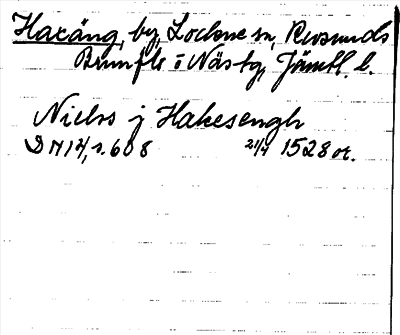 Haxäng, by, Lockne sn, Revsunds
Brunflo o Näs tg, Jämtl. l.
Niels j Hakesengh
DN 14, s. 608 21/4 1528 or.